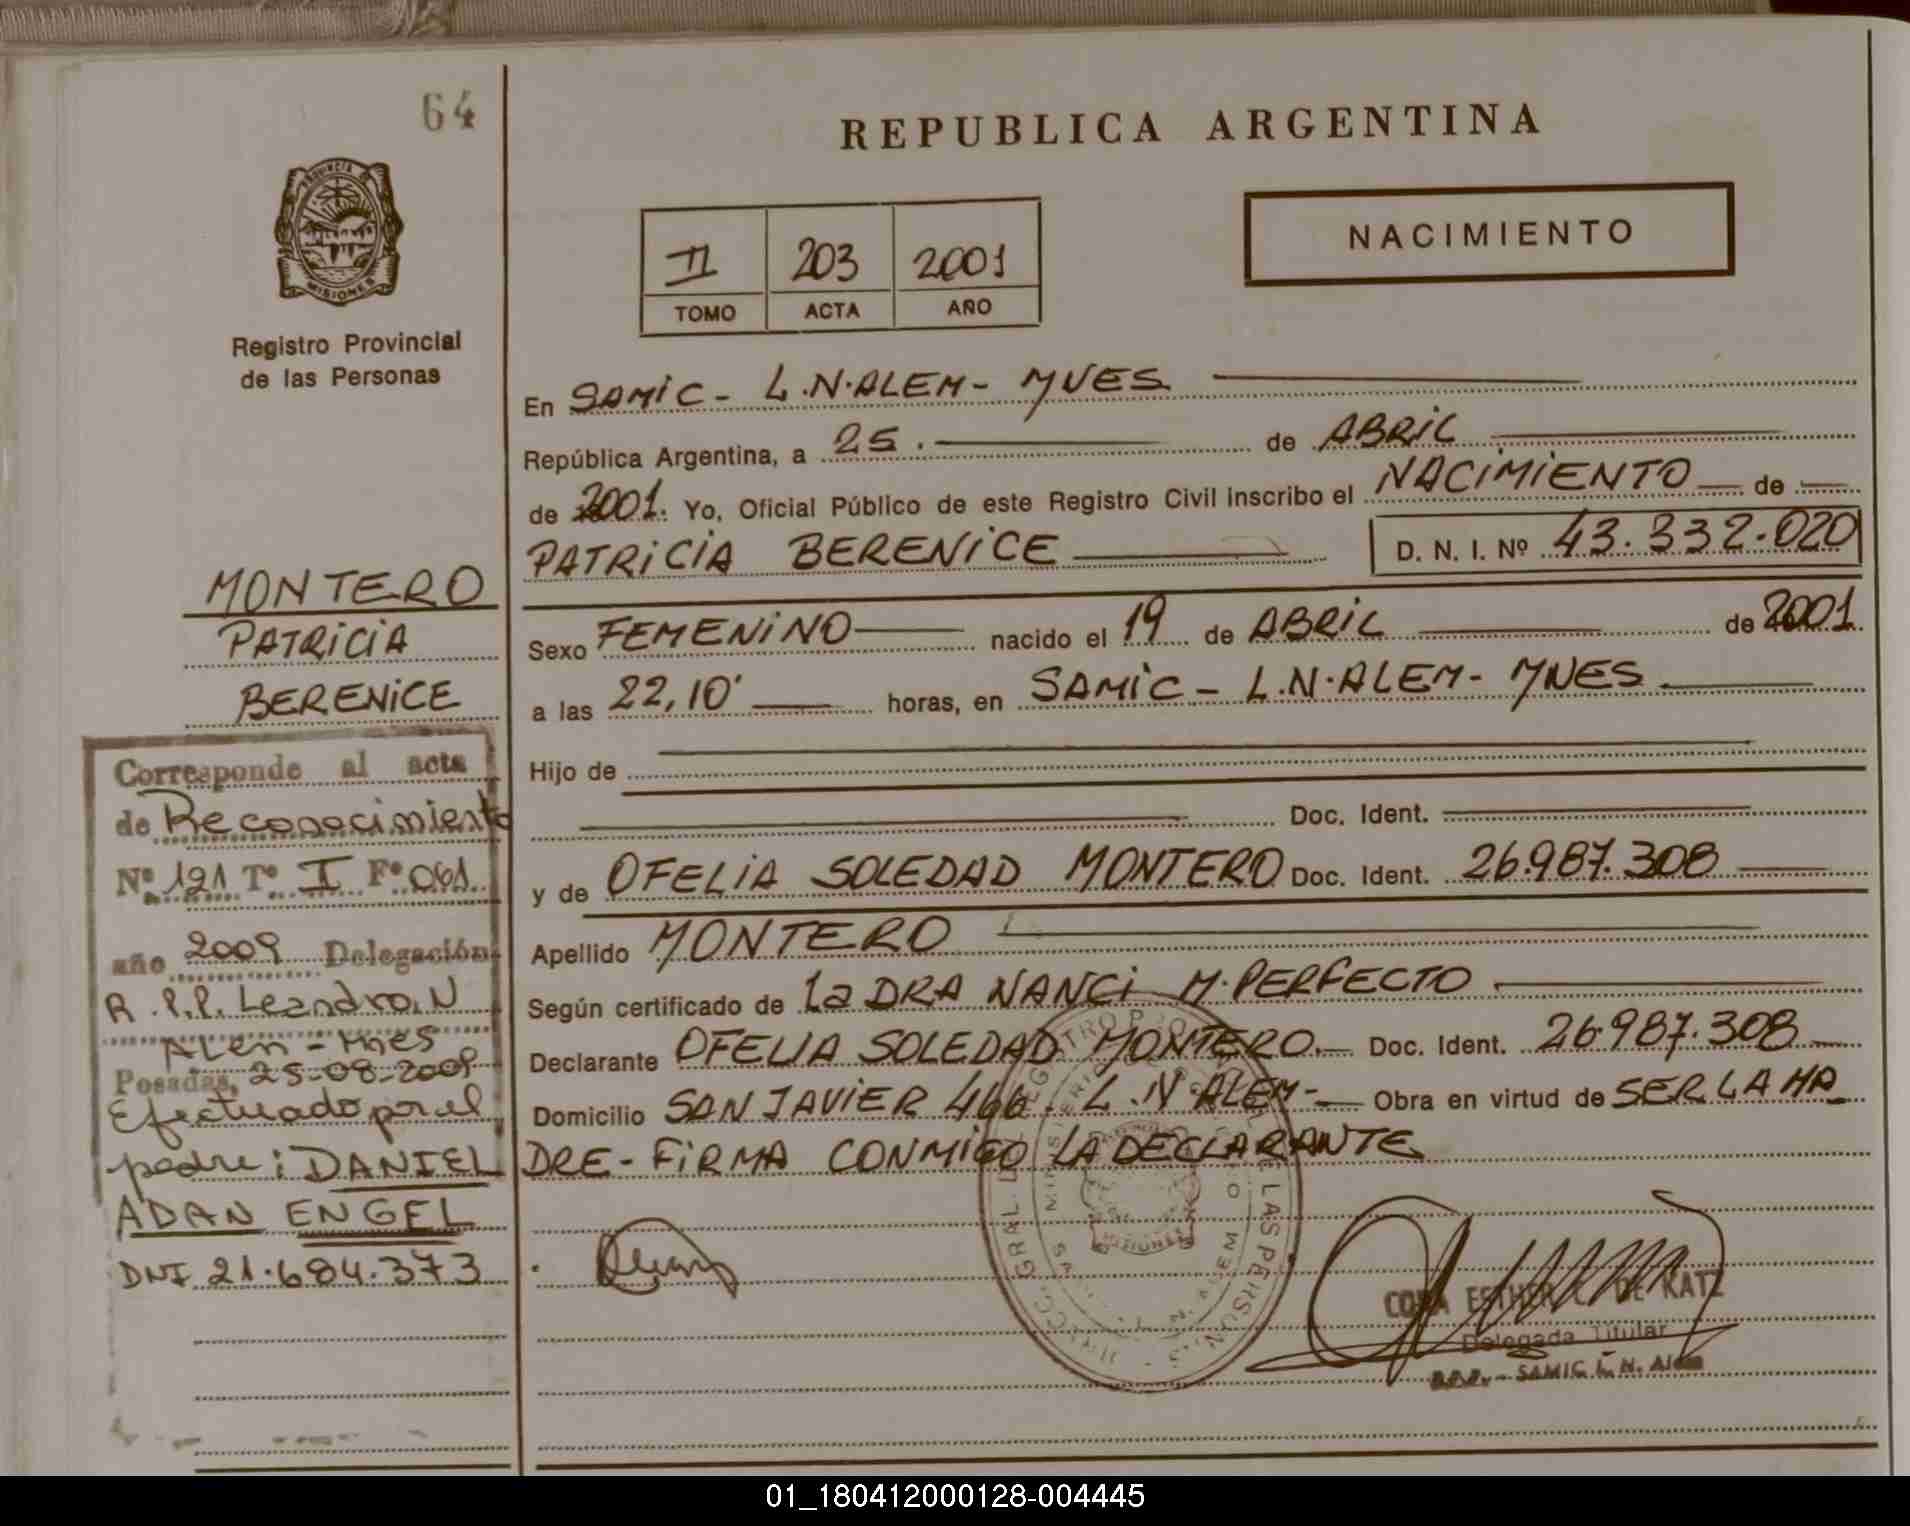 64
REPUBLICA ARGENTINA
PROVINCIA DE
MISIONES
Registro Provincial
de las Personas
NACIMIENTO
II 203 2001
TOMO ACTA AÑO
En SAMIC - L.N.ALEM - MNES
República Argentina, a 25. de ABRIL
de 2001. Yo, Oficial Público de este Registro Civil inscribo el NACIMIENTO de
PATRICIA BERENICE D. N. I. Nº 43.332.020
Sexo FEMENINO nacido el 19 de ABRIL de 2001.
a las 22,10' horas, en SAMIC - L.N.ALEM - MNES
Hijo de
Doc. Ident.
y de OFELIA SOLEDAD MONTERO Doc. Ident. 26.987.308
Apellido MONTERO
Según certificado de La DRA NANCI M. PERFECTO
Declarante OFELIA SOLEDAD MONTERO Doc. Ident. 26.987.308
Domicilio SAN JAVIER 466 - L.N.ALEM - Obra en virtud de SER LA MA
DRE - FIRMA CONMIGO LA DECLARANTE
MISIONES
CORA ESTHER C. DE KATZ
Delegada Titular
R.P.P. - SAMIC L. N. Alem
MONTERO
PATRICIA
BERENICE
Corresponde al acta
de Reconocimiento
Nº 121 Tº I Fº 061
año 2009 Delegación
R.P.P. Leandro N
Alem - Mnes
Posadas, 25-08-2009
Efectuado por el
padre: DANIEL
ADAN ENGEL
DNI 21.684.373
01_180412000128-004445